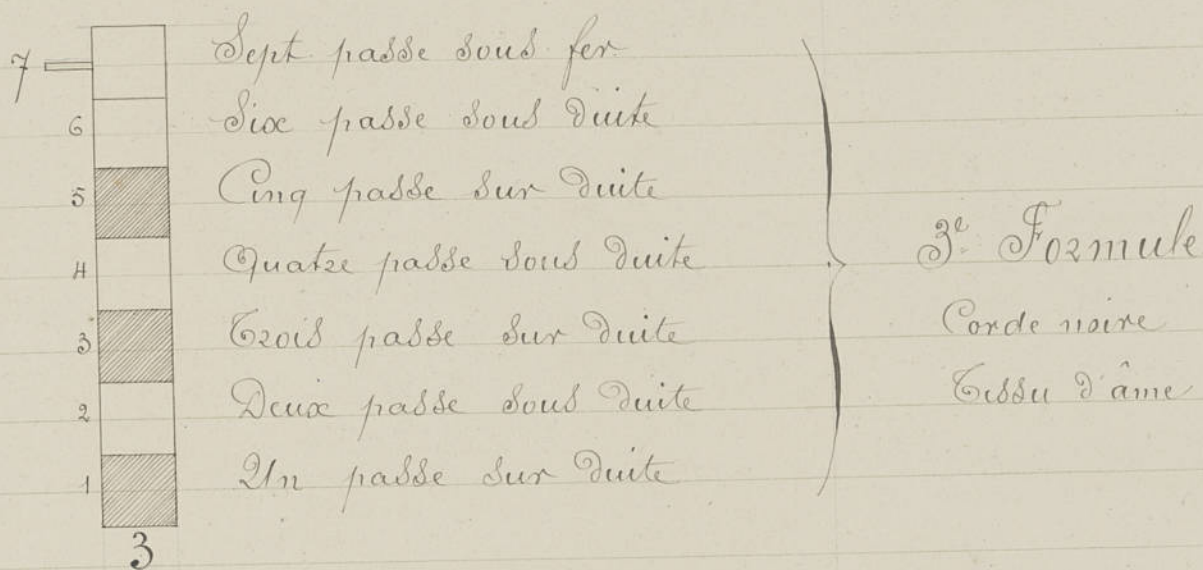 7 Sept passe sous fer
6 Six passe sous duite
5 Cinq passe sur duite
4 Quatre passe sous duite
3 Trois passe sur duite
2 Deux passe sous duite
1 Un passe sur duite
3
3e Formule
Corde noire
Tissu d'âme